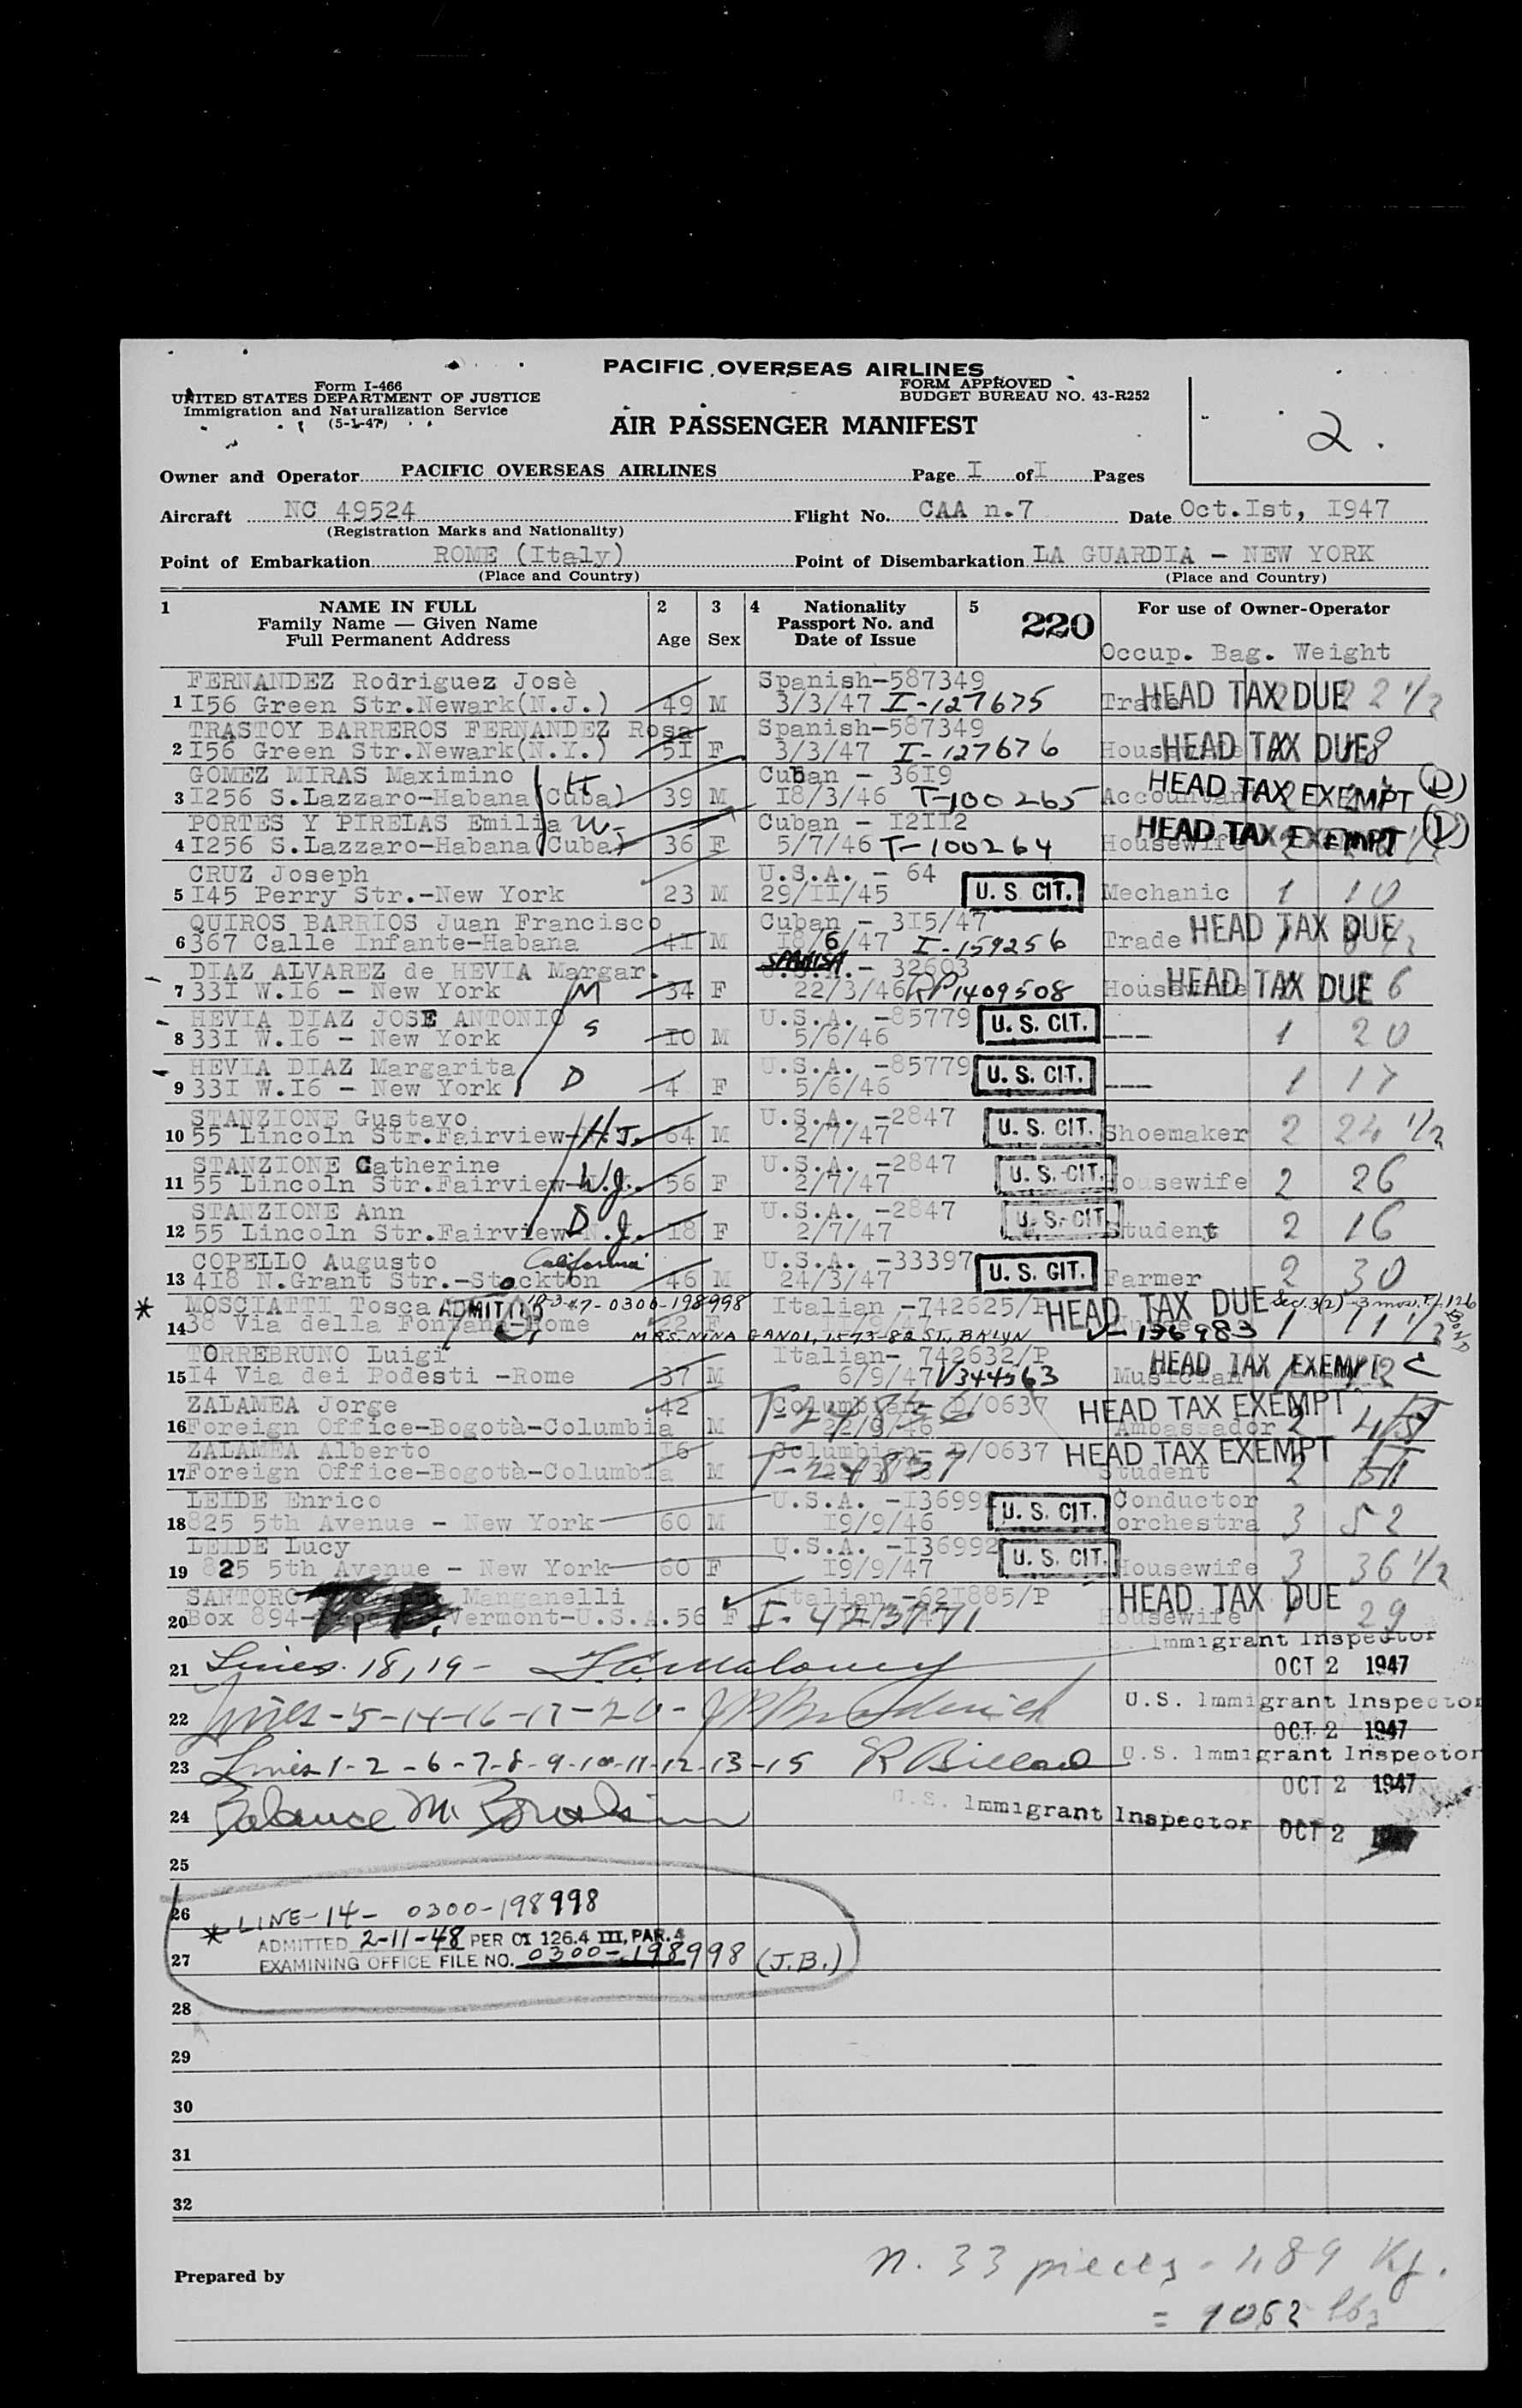 PACIFIC OVERSEAS AIRLINES
Form I-466
UNITED STATES DEPARTMENT OF JUSTICE
Immigration and Naturalization Service
(5-1-47)
FORM APPROVED
BUDGET BUREAU NO. 43-R252
AIR PASSENGER MANIFEST
2.
Owner and Operator PACIFIC OVERSEAS AIRLINES Page I of I Pages
Aircraft NC 49524 Flight No. CAA n.7 Date Oct.Ist, I947
(Registration Marks and Nationality)
Point of Embarkation ROME (Italy) Point of Disembarkation LA GUARDIA - NEW YORK
(Place and Country) (Place and Country)
1 NAME IN FULL 2 3 4 Nationality 5 220 For use of Owner-Operator
Family Name — Given Name Passport No. and
Full Permanent Address Age Sex Date of Issue
Occup. Bag. Weight
FERNANDEZ Rodriguez Josè Spanish-587349
1 I56 Green Str.Newark(N.J.) 49 M 3/3/47 I-127675 HEAD TAX DUE 22 1/2
TRASTOY BARREROS FERNANDEZ Rosa Spanish-587349
2 I56 Green Str.Newark(N.Y.) 5I F 3/3/47 I-127676 HEAD TAX DUE
GOMEZ MIRAS Maximino H Cuban - 36I9
3 I256 S.Lazzaro-Habana(Cuba) 39 M I8/3/46 T-100265 Accountant HEAD TAX EXEMPT (D)
PORTES Y PIRELAS Emilia W Cuban - I2II2
4 I256 S.Lazzaro-Habana(Cuba) 36 F 5/7/46 T-100264 Housewife HEAD TAX EXEMPT (D)
CRUZ Joseph U.S.A. - 64
5 I45 Perry Str.-New York 23 M 29/II/45 U. S. CIT. Mechanic 1 10
QUIROS BARRIOS Juan Francisco Cuban - 3I5/47
6 367 Calle Infante-Habana 4I M I8/6/47 I-159256 Trade HEAD TAX DUE
DIAZ ALVAREZ de HEVIA Margar. SPANISH - 32603
7 33I W.I6 - New York M 34 F 22/3/46 RP1409508 HEAD TAX DUE 6
HEVIA DIAZ JOSE ANTONIO U.S.A. -85779
8 33I W.I6 - New York S I0 M 5/6/46 U. S. CIT. --- 1 20
HEVIA DIAZ Margarita U.S.A. -85779
9 33I W.I6 - New York D 4 F 5/6/46 U. S. CIT. --- 1 17
STANZIONE Gustavo U.S.A. -2847
10 55 Lincoln Str.Fairview-H.J. 64 M 2/7/47 U. S. CIT. Shoemaker 2 24 1/2
STANZIONE Catherine U.S.A. -2847
11 55 Lincoln Str.Fairview-W.J. 56 F 2/7/47 U. S. CIT. Housewife 2 26
STANZIONE Ann U.S.A. -2847
12 55 Lincoln Str.Fairview D N.J. I8 F 2/7/47 U. S. CIT. Student 2 16
COPELLO Augusto California U.S.A. -33397
13 4I8 N.Grant Str.-Stockton 46 M 24/3/47 U. S. CIT. Farmer 2 30
* MOSCIATTI Tosca ADMITTED 10-3-47-0300-198998 Italian -742625/P HEAD TAX DUE
14 38 Via della Fontana-Rome 22 F MRS. NINA GANDI, 1573-82 ST., BKLYN V-136983 1 11 1/2
TORREBRUNO Luigi Italian- 742632/P
15 I4 Via dei Podesti -Rome 37 M 6/9/47 V344563 Musician HEAD TAX EXEMPT C
ZALAMEA Jorge 42 Columbian- D/0637 HEAD TAX EXEMPT
16 Foreign Office-Bogotà-Columbia M Ambassador 2
ZALAMEA Alberto I6 Columbian- D/0637 HEAD TAX EXEMPT
17 Foreign Office-Bogotà-Columbia M T-24837 Student 2
LEIDE Enrico U.S.A. -I3699 Conductor
18 825 5th Avenue - New York 60 M I9/9/46 U. S. CIT. orchestra 3 52
LEIDE Lucy U.S.A. -I36992
19 825 5th Avenue - New York 60 F I9/9/47 U. S. CIT. Housewife 3 36 1/2
SANTORO Manganelli Italian -62I885/P HEAD TAX DUE
20 Box 894- Vermont-U.S.A. 56 F Housewife 29
Immigrant Inspector
21 Lines. 18, 19- OCT 2 1947
U.S. Immigrant Inspector
22 Lines-5-14-16-17-20- OCT 2 1947
U.S. Immigrant Inspector
23 Lines 1-2-6-7-8-9-10-11-12-13-15 OCT 2 1947
24 Balance U.S. Immigrant Inspector OCT 2
25
26 * LINE-14- 0300-198998
ADMITTED 2-11-48 PER OI 126.4 III, PAR. 4
27 EXAMINING OFFICE FILE NO. 0300-198998 (J.B.)
28
29
30
31
32
n. 33 pieces - 489 Kg.
Prepared by
= 1062 lbs